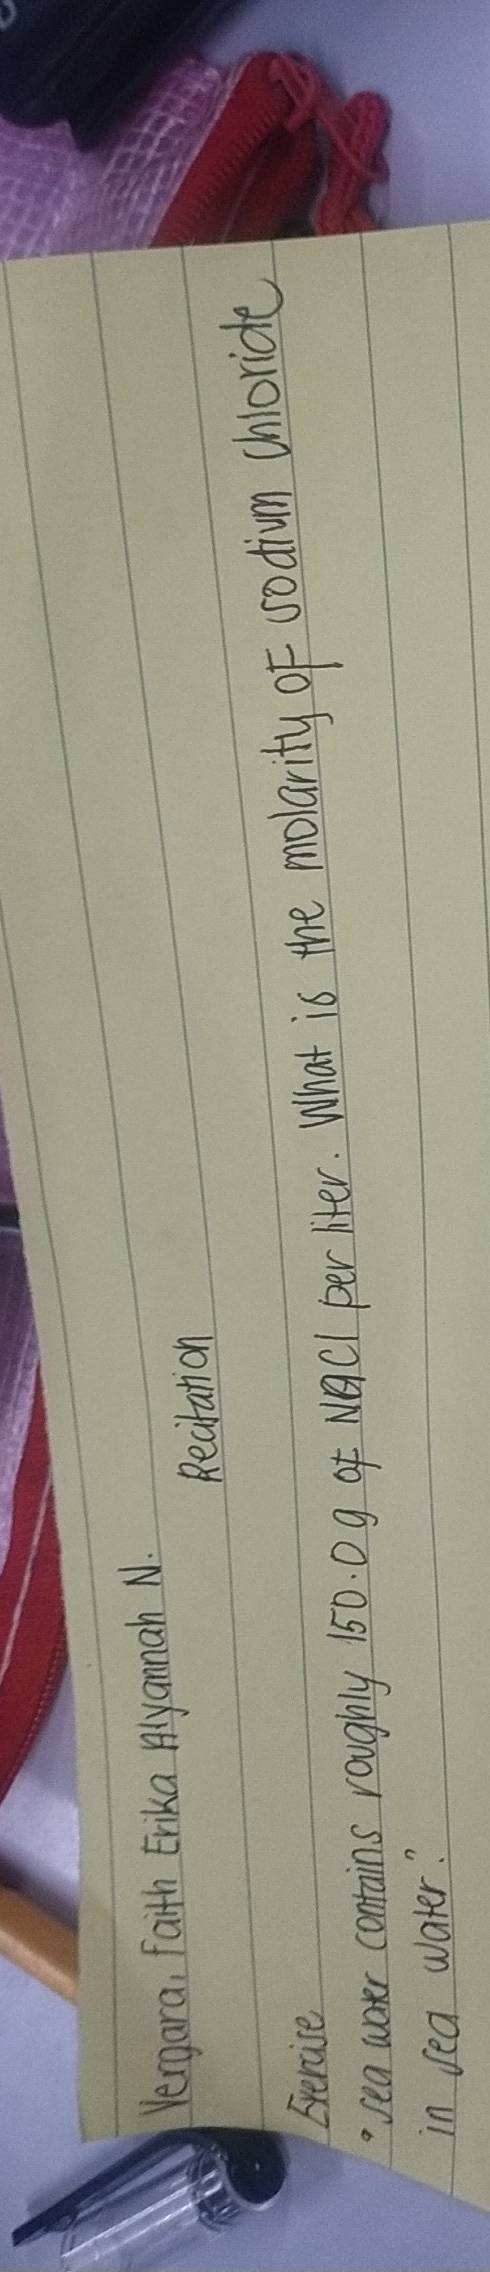 Vergara, Faith Erika Alyannah N.
Recitation
Exercise
• sea water contains roughly 150.0g of NaCl per liter. What is the molarity of sodium chloride
in sea water?